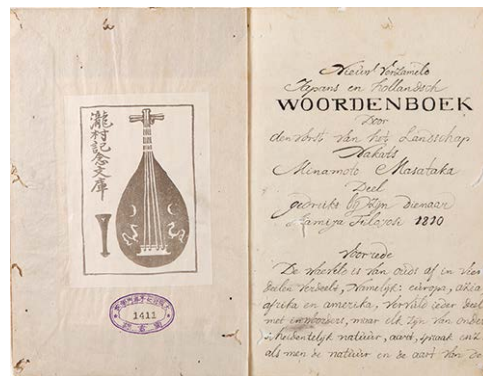 瀧村記念文庫
1411
Nieuw Verzameld
Japans en Hollandsch
WOORDENBOEK
Door
den Vorst van het Landschap
Nakats
Minamoto Masataka
Deel
gedrukt by zyn dienaar
Kamija Filojosi 1810
Voorrede
De waereld is van ouds af in vier
deelen verdeeld, Namelyk: europa, asia
afrika en amerika, vervult ieder deel
met inwooners, maar elk zyn van onder
scheidentelyk natuur, aard, spraak en z
als men de natuur en de aart van de